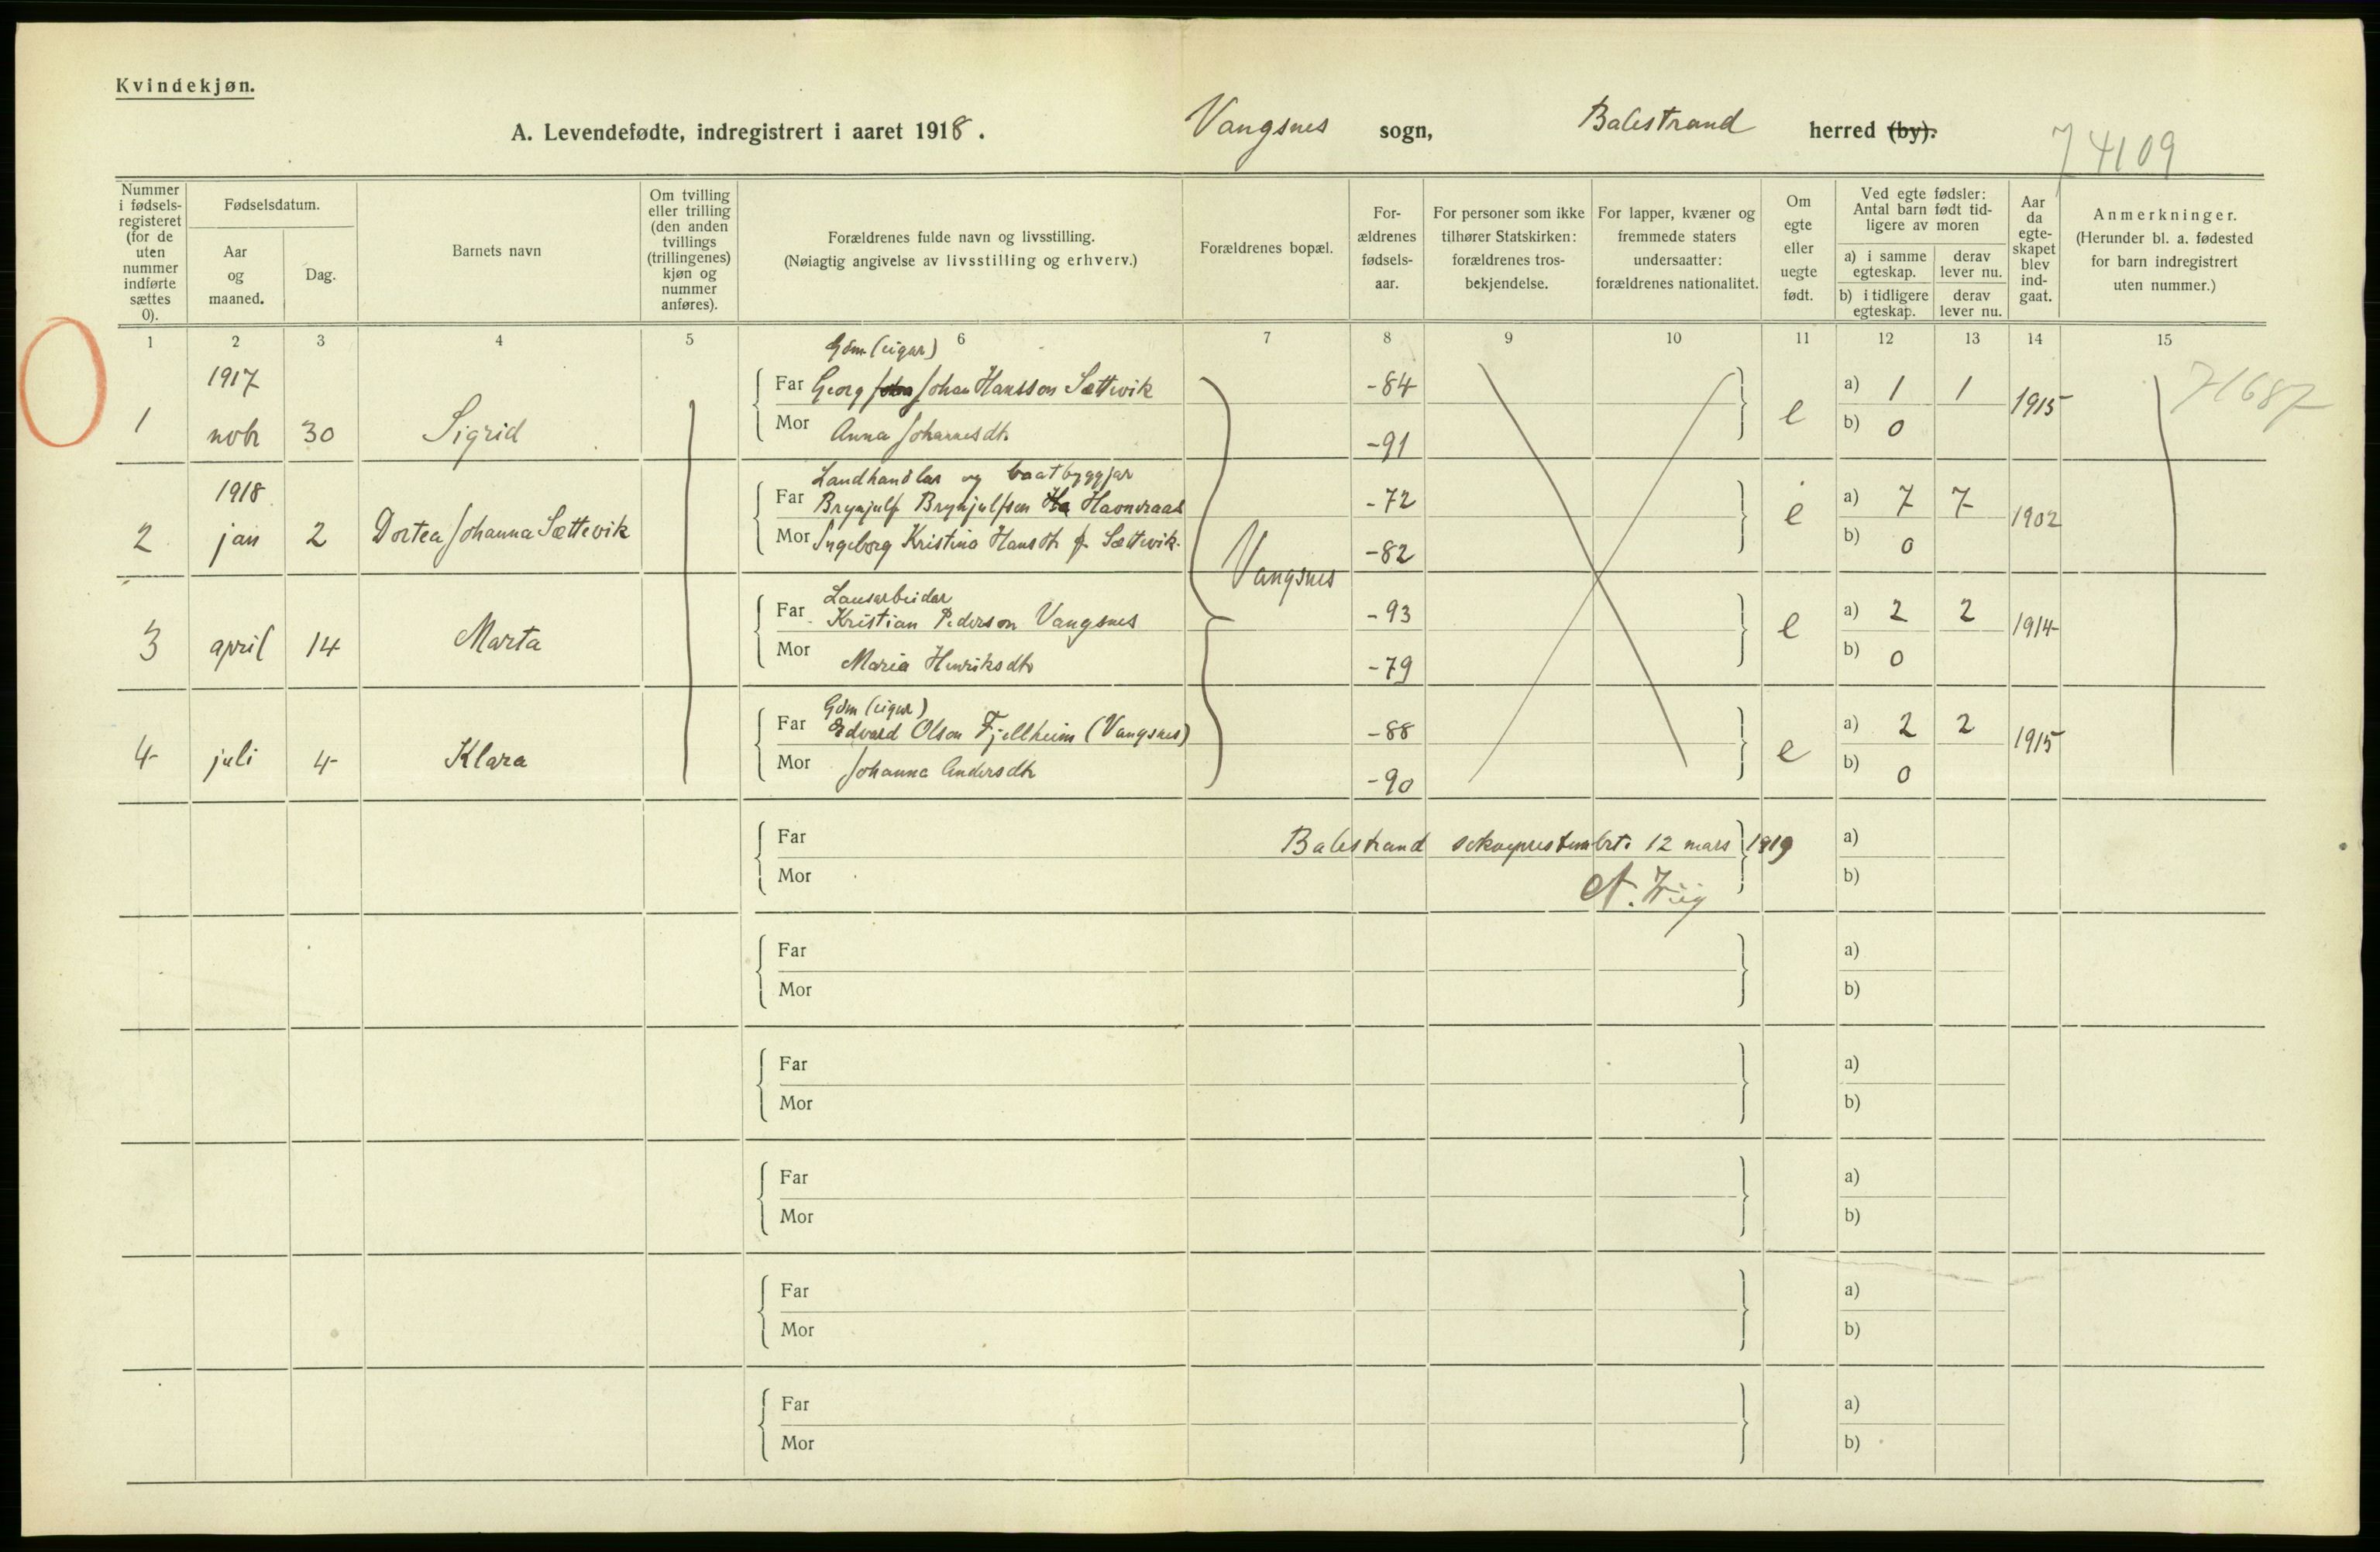 Kvindekjøn.
A. Levendefødte, indregistrert i aaret 1918.
Vangsnes sogn, Balestrand herred (by).
74109
Nummer i fødsels-registeret (for de uten nummer indførte sættes 0).
Fødselsdatum.
Aar og maaned.
Dag.
Barnets navn
Om tvilling eller trilling (den anden tvillings (trillingenes) kjøn og nummer anføres).
Forældrenes fulde navn og livsstilling.
(Nøiagtig angivelse av livsstilling og erhverv.)
Forældrenes bopæl.
For-ældrenes fødsels-aar.
For personer som ikke tilhører Statskirken: forældrenes tros-bekjendelse.
For lapper, kvæner og fremmede staters undersaatter: forældrenes nationalitet.
Om egte eller uegte født.
Ved egte fødsler: Antal barn født tid-ligere av moren
a) i samme egteskap.
derav lever nu.
b) i tidligere egteskap.
derav lever nu.
Aar da egte-skapet blev ind-gaat.
Anmerkninger.
(Herunder bl. a. fødested for barn indregistrert uten nummer.)
1 2 3 4 5 6 7 8 9 10 11 12 13 14 15
Gdm (eigar)
1917 Far Georg Johan Hansson Sættevik -84 a) 1 1 1915 71687
1 nobr 30 Sigrid Mor Anna Johannesdtr -91 e b) 0
Landhandlar og baatbyggjar
1918 Far Brynjulf Brynjulfson Ha Havnraas -72 a) 7 7 1902
2 jan 2 Dortea Johanna Sættevik Mor Ingeborg Kristina Hansdtr f. Sættevik. -82 e b) 0
Vangsnes
Lausarbeidar
Far Kristian Pederson Vangsnes -93 a) 2 2 1914
3 april 14 Marta Mor Maria Henriksdtr -79 e b) 0
Gdm (eigar)
Far Edvard Olson Fjellheim (Vangsnes) -88 a) 2 2 1915
4 juli 4 Klara Mor Johanna Andersdtr -90 e b) 0
Far Balestrand sokneprestembæt. 12 mars 1919 a)
Mor A. Wiig b)
Far a)
Mor b)
Far a)
Mor b)
Far a)
Mor b)
Far a)
Mor b)
Far a)
Mor b)